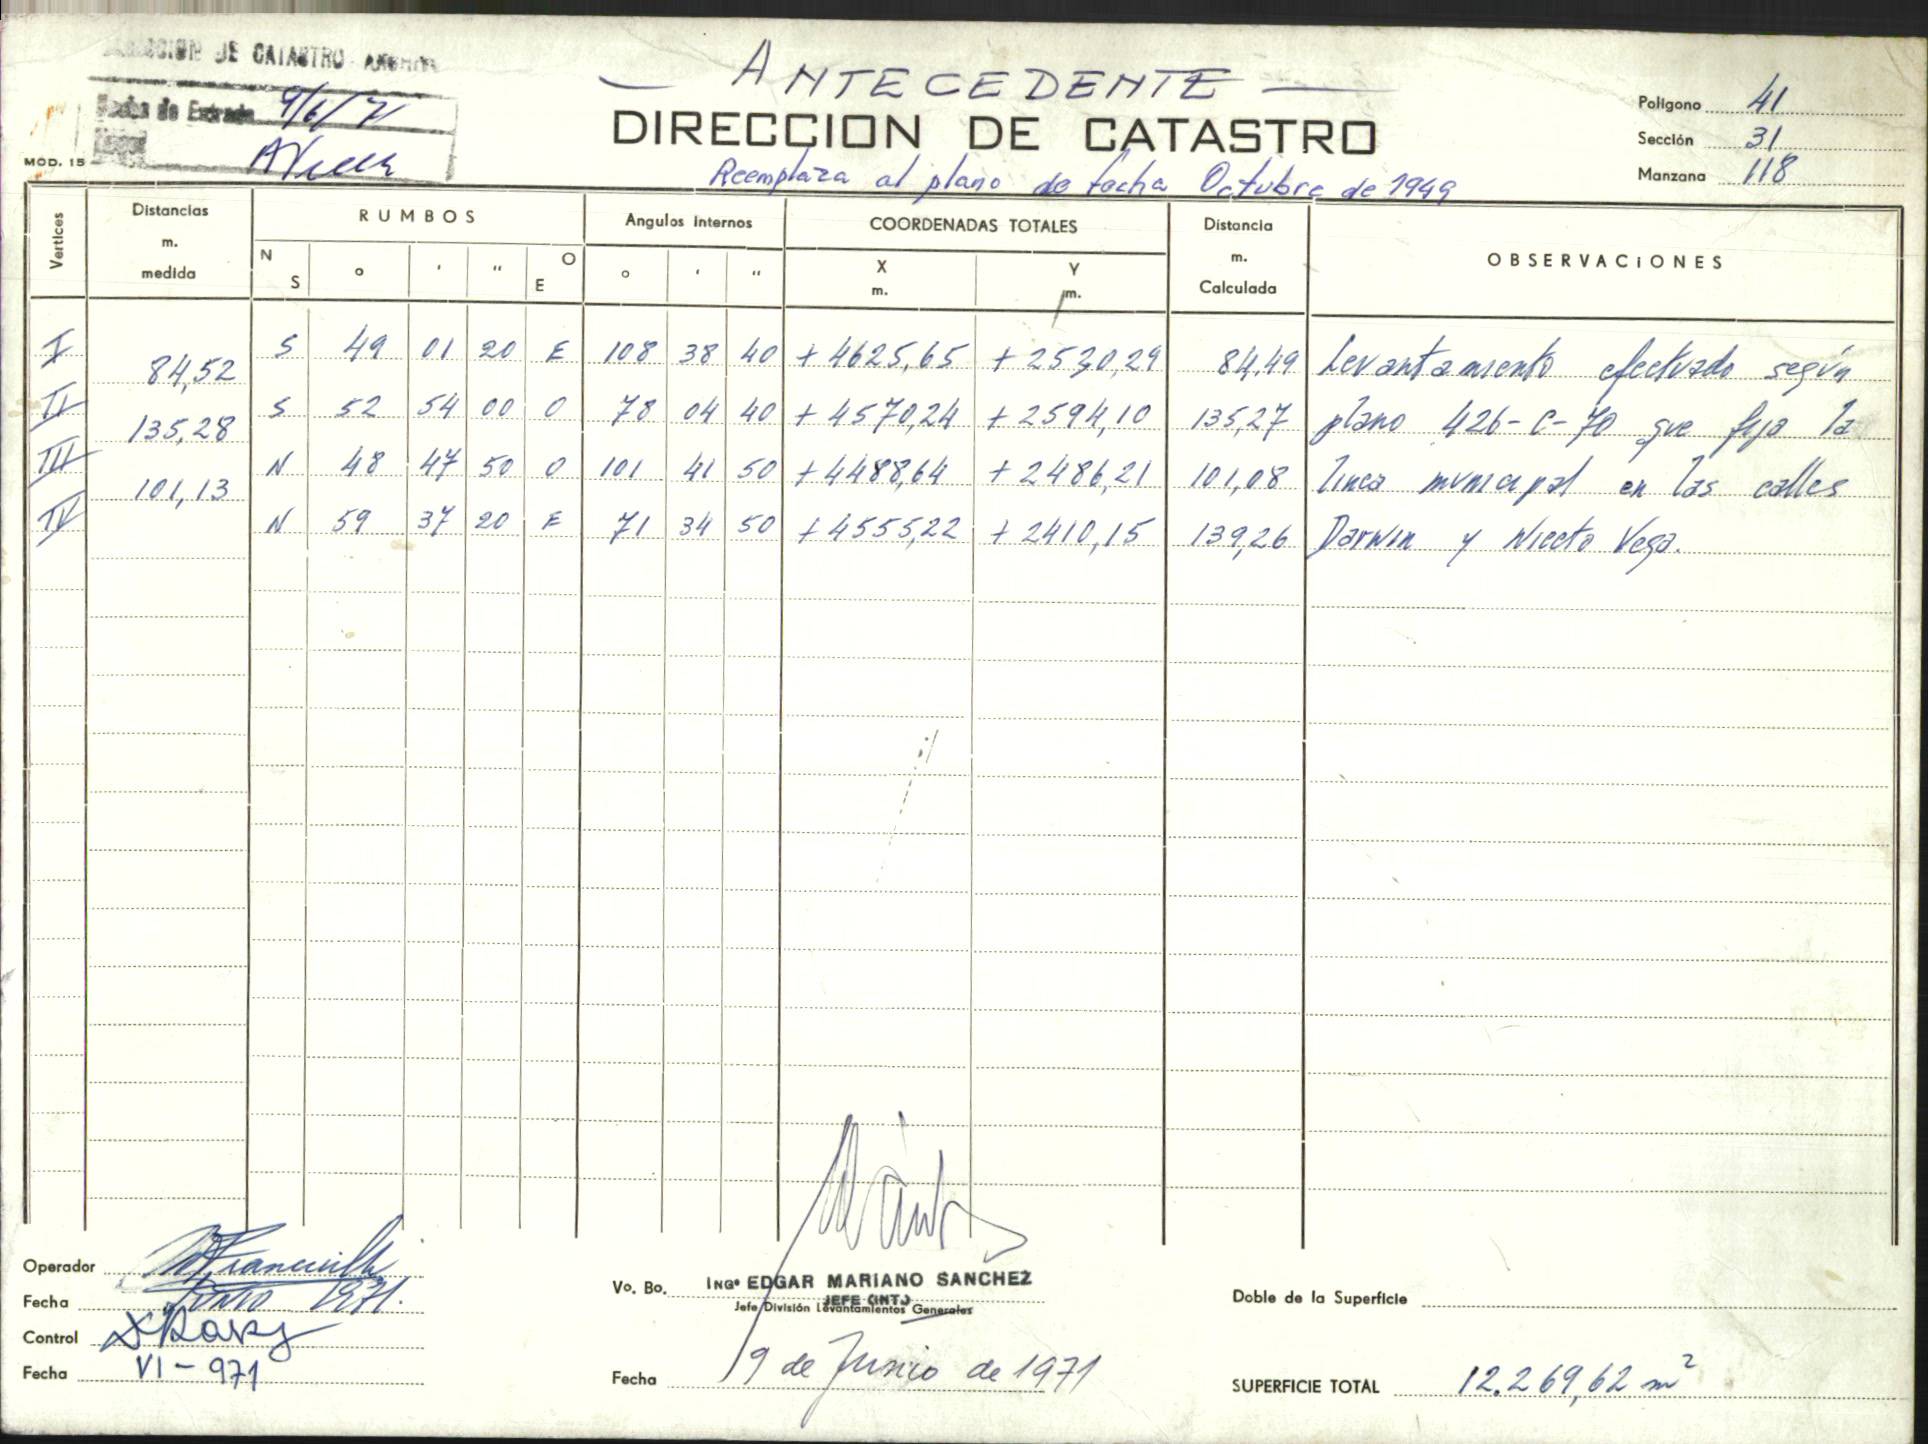 DIRECCION DE CATASTRO
Fecha de Entrada 9/6/71
MOD. 15
ANTECEDENTE
DIRECCION DE CATASTRO
Reemplaza al plano de fecha Octubre de 1949
Polígono 41
Sección 31
Manzana 118
Vertices Distancias m. medida RUMBOS Angulos Internos COORDENADAS TOTALES Distancia m. Calculada OBSERVACiONES
N S ° ' " O E ° ' " X m. Y m.
I 84,52 S 49 01 20 E 108 38 40 + 4625,65 + 2530,29 84,49 Levantamiento efectuado según
II 135,28 S 52 54 00 O 78 04 40 + 4570,24 + 2594,10 135,27 plano 426-C-70 que fija la
III 101,13 N 48 47 50 O 101 41 50 + 4488,64 + 2486,21 101,08 linea municipal en las calles
IV N 59 37 20 E 71 34 50 + 4555,22 + 2410,15 139,26 Darwin y Niceto Vega.
Operador
Fecha Junio 1971.
Control
Fecha VI - 971
Vo. Bo. ING° EDGAR MARIANO SANCHEZ
JEFE (INT.)
Jefe División Levantamientos Generales
Fecha 19 de Junio de 1971
Doble de la Superficie
SUPERFICIE TOTAL 12.269,62 m²